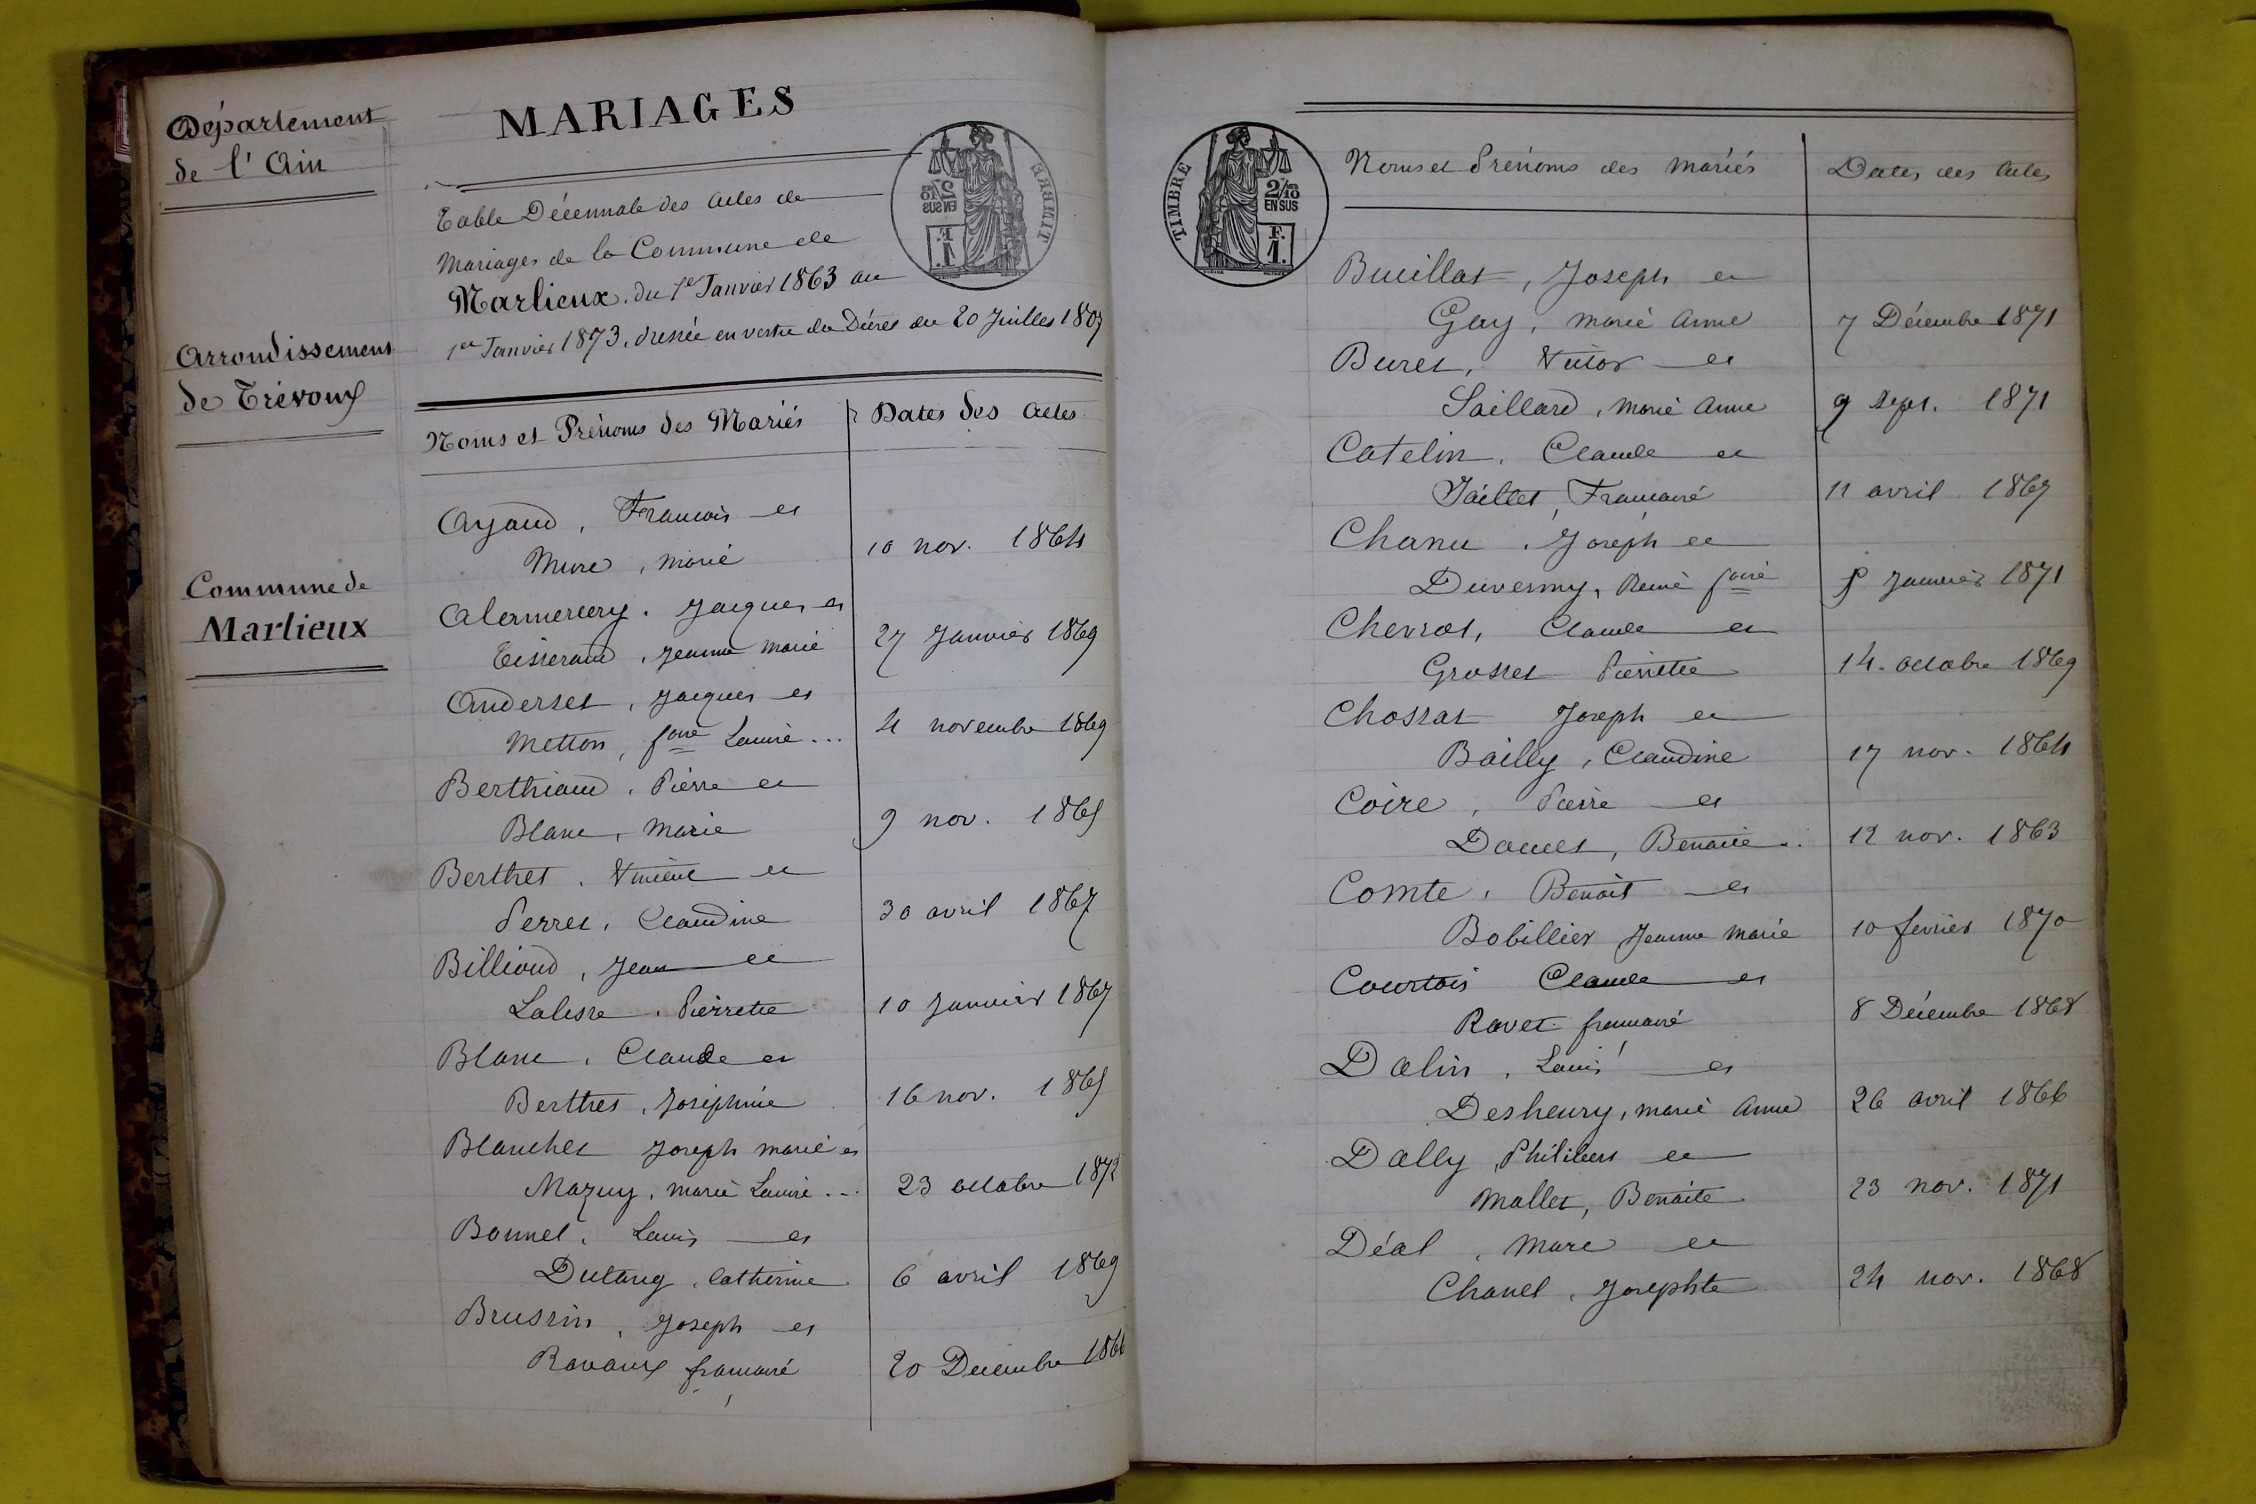 Département
de l'Ain
Arrondissement
de Trévoux
Commune de
Marlieux
MARIAGES
Table Décennale des actes de
Mariages de la Commune de
Marlieux, du 1er Janvier 1863 au
1er Janvier 1873, dressée en vertu du Décret du 20 Juillet 1807
TIMBRE
2/10
EN SUS
1 F.
Noms et Prénoms des Mariés
Dates des actes
Ayaud, François et
Mure, Marie
10 nov. 1864
Alermercery, Jacques et
Tisserand, Jeanne Marie
27 Janvier 1869
Anderset, Jacques et
Metton, fçoise Louise...
4 novembre 1869
Berthiaud, Pierre et
Blanc, Marie
9 nov. 1865
Berthet, Vincent et
Perret, Claudine
30 avril 1867
Billioud, Jean et
Lalisse, Pierrette
10 Janvier 1867
Blanc, Claude et
Berthet, Joséphine
16 nov. 1865
Blanchet Joseph Marie et
Mazuy, Marie Louise...
23 octobre 1872
Bonnet, Louis et
Dutang, Catherine
6 avril 1869
Brussin, Joseph et
Ravaux françoise
20 Décembre 1866
TIMBRE
2/10
EN SUS
F.
1.
Noms et Prénoms des Mariés
Dates des actes
Bueillat, Joseph et
Gay, Marie Anne
7 Décembre 1871
Buret, Victor et
Saillard, Marie Anne
9 Sept. 1871
Catelin, Claude et
Jaillet, Françoise
11 avril 1867
Chanu, Joseph et
Duverny, Reine fçoise
5 Janvier 1871
Chevrot, Claude et
Grosset Pierrette
14 octobre 1869
Chossat Joseph et
Bailly, Claudine
17 nov. 1864
Coire, Pierre et
Benoite..
12 nov. 1863
Comte, Benoit et
Bobillier Jeanne Marie
10 février 1870
Courtois Claude et
Ravet françoise
8 Décembre 1868
Dalin, Louis et
Desheury, Marie Anne
26 avril 1866
Dally, Philibert et
Mallet, Benoite
23 nov. 1871
Déal, Marc et
Chanel, Josephte
24 nov. 1868